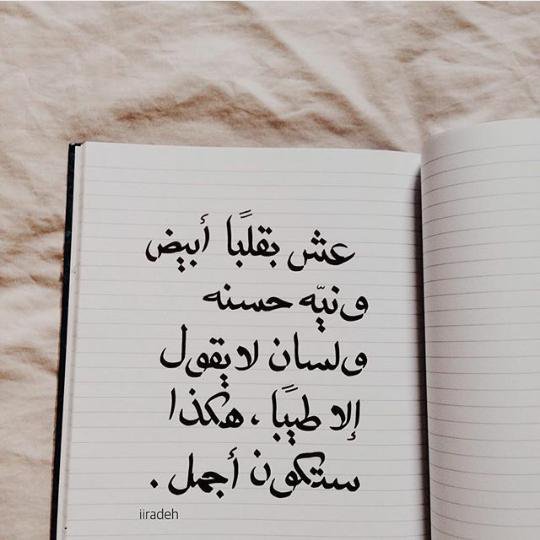 عش بقلبًا أبيض
ونيّه حسنه
ولسان لايقول
إلا طيبًا ، هكذا
ستكون أجمل .
iiradeh